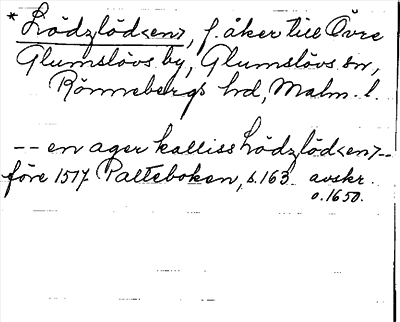 * Lödzlöd<en>, f. åker till Övre
Glumslövs by, Glumslövs sn,
Rönnebergs hd, Malm. l.
-- en ager kalliss Lödzlöd<en> --
före 1517 Palteboken, s. 163 avskr.
o. 1650.